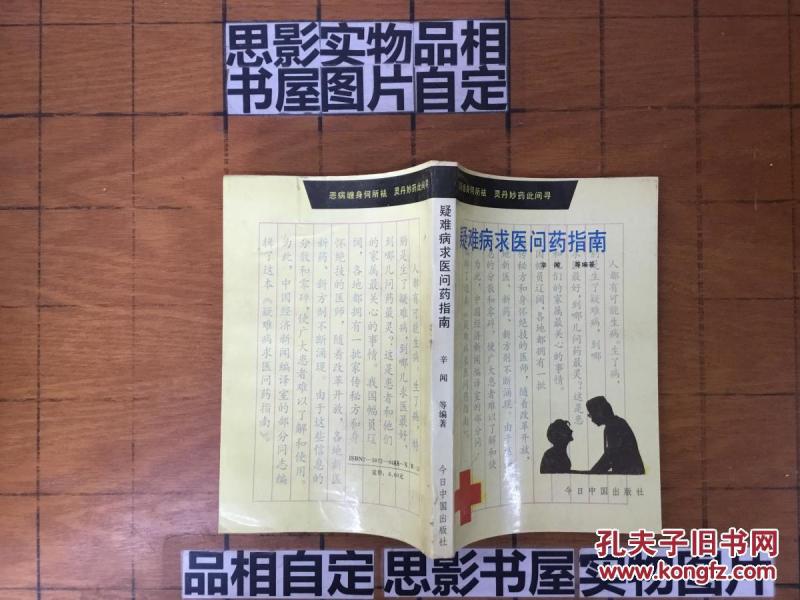 思影实物品相
书屋图片自定
恶病缠身何所祛 灵丹妙药此间寻
缠身何所祛 灵丹妙药此间寻
疑难病求医问药指南
辛闻 等编著
今日中国出版社
疑难病求医问药指南
辛闻 等编著
今日中国出版社
人都有可能生病。生了病，特
别是生了疑难病，到哪儿求医最好，
到哪儿问药最灵？这是患者和他们
的家属最关心的事情。我国幅员辽
阔，各地都拥有一批家传秘方和身
怀绝技的医师，随着改革开放，各地新医
新药、新方剂不断涌现。由于这些信息的
分散和零碎，使广大患者难以了解和使用。
为此，中国经济新闻编译室的部分同志编
辑了这本《疑难病求医问药指南》。
定价：5.60元
品相自定
思影书屋
实物图片
孔夫子旧书网
www.kongfz.com